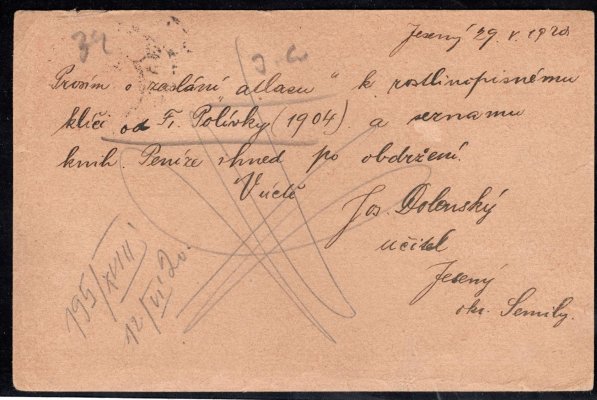 Jesený 29. V. 1920
Prosím o zaslání atlasu " k rostlinopisnému
klíči od F. Polívky (1904) a seznamu
knih. Peníze ihned po obdržení.
V úctě
Jos. Dolenský
učitel
Jesený
okr. Semily.
195/XIII
12/VI 20.